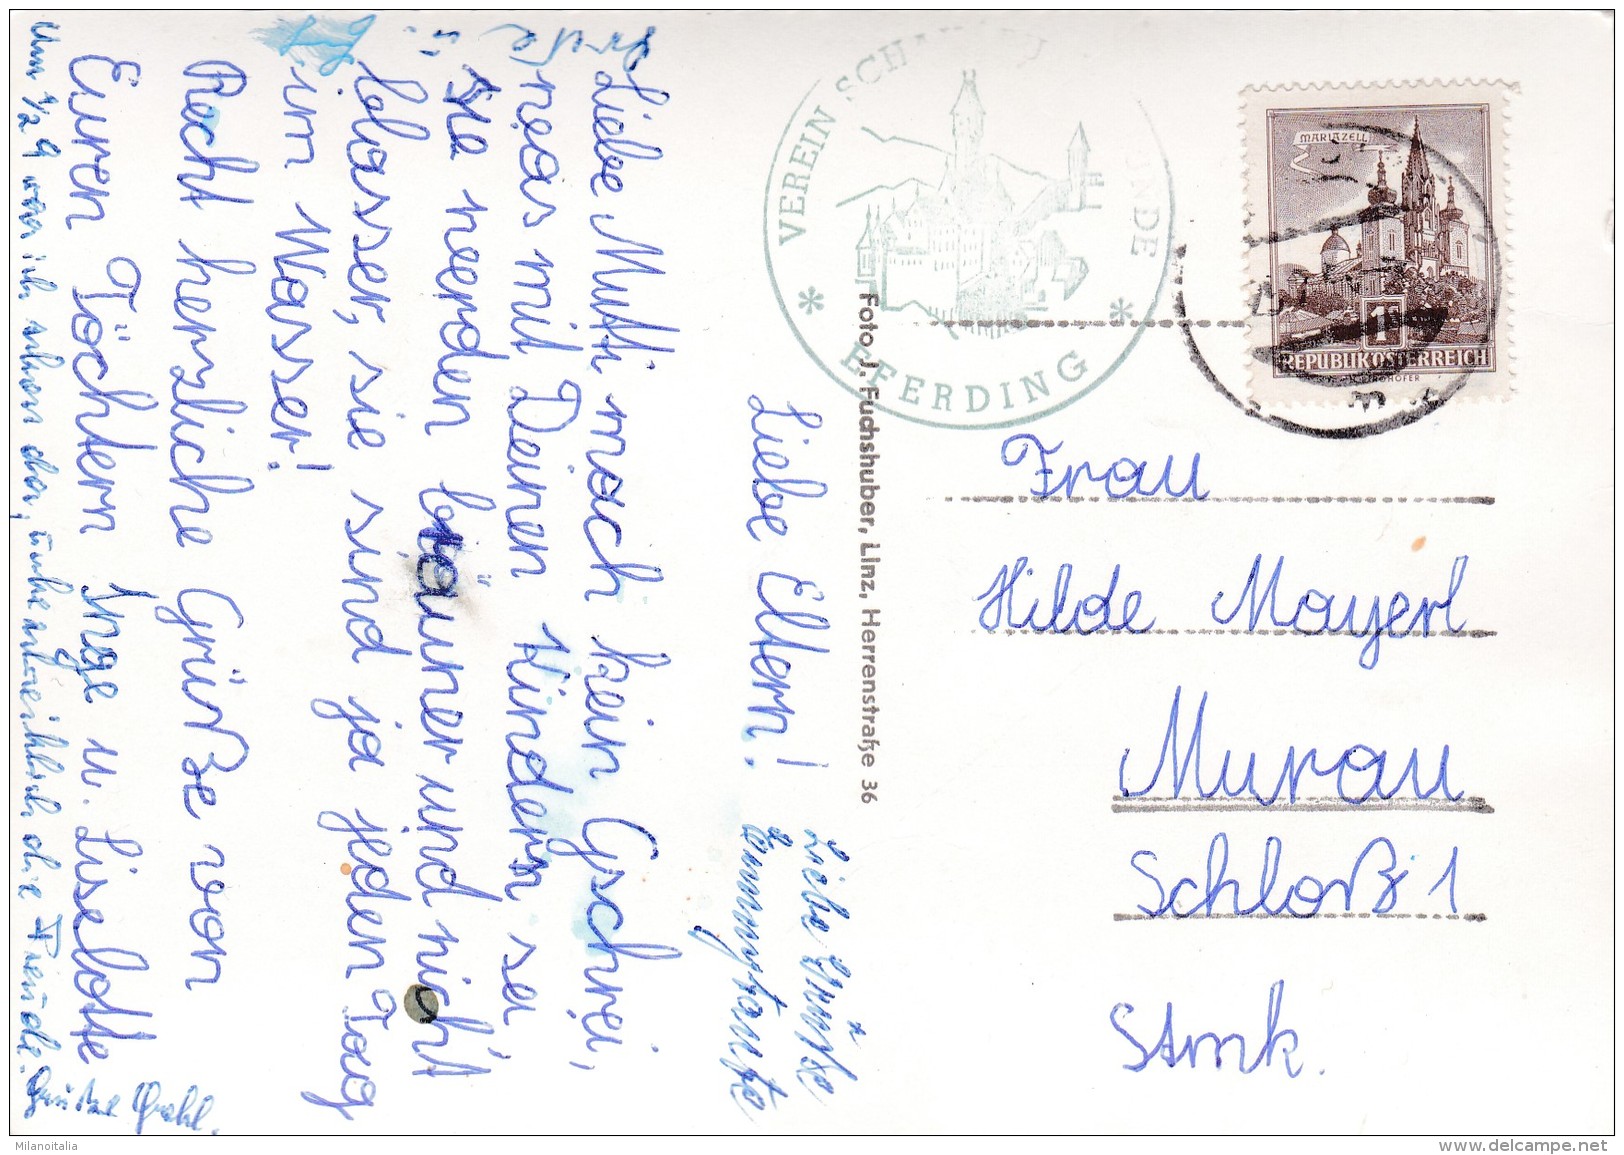 Liebe Eltern!
Liebe Mutti mach kein Gschrei,
was mit Deinen Kindern sei
sie werden bräuner und nicht
blasser, sie sind ja jeden Tag
im Wasser!
Recht herzliche Grüße von
Euren Töchtern Inge u. Liselotte
Um 1/2 9 war ich schon da, unbeschreiblich die Freude.
Liebe Grüße
VEREIN
EFERDING
Foto J. Fuchshuber, Linz, Herrenstraße 36
MARIAZELL
1
REPUBLIK ÖSTERREICH
Frau
Hilde Mayerl
Murau
Schloß 1
Stmk.
Milanoitalia
www.delcampe.net